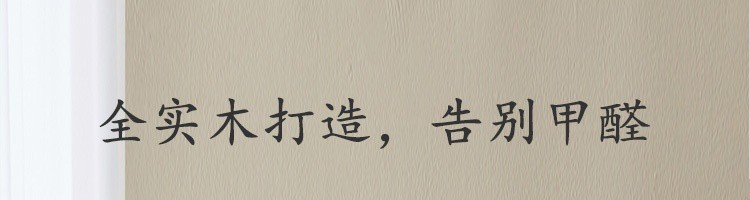 全实木打造，告别甲醛